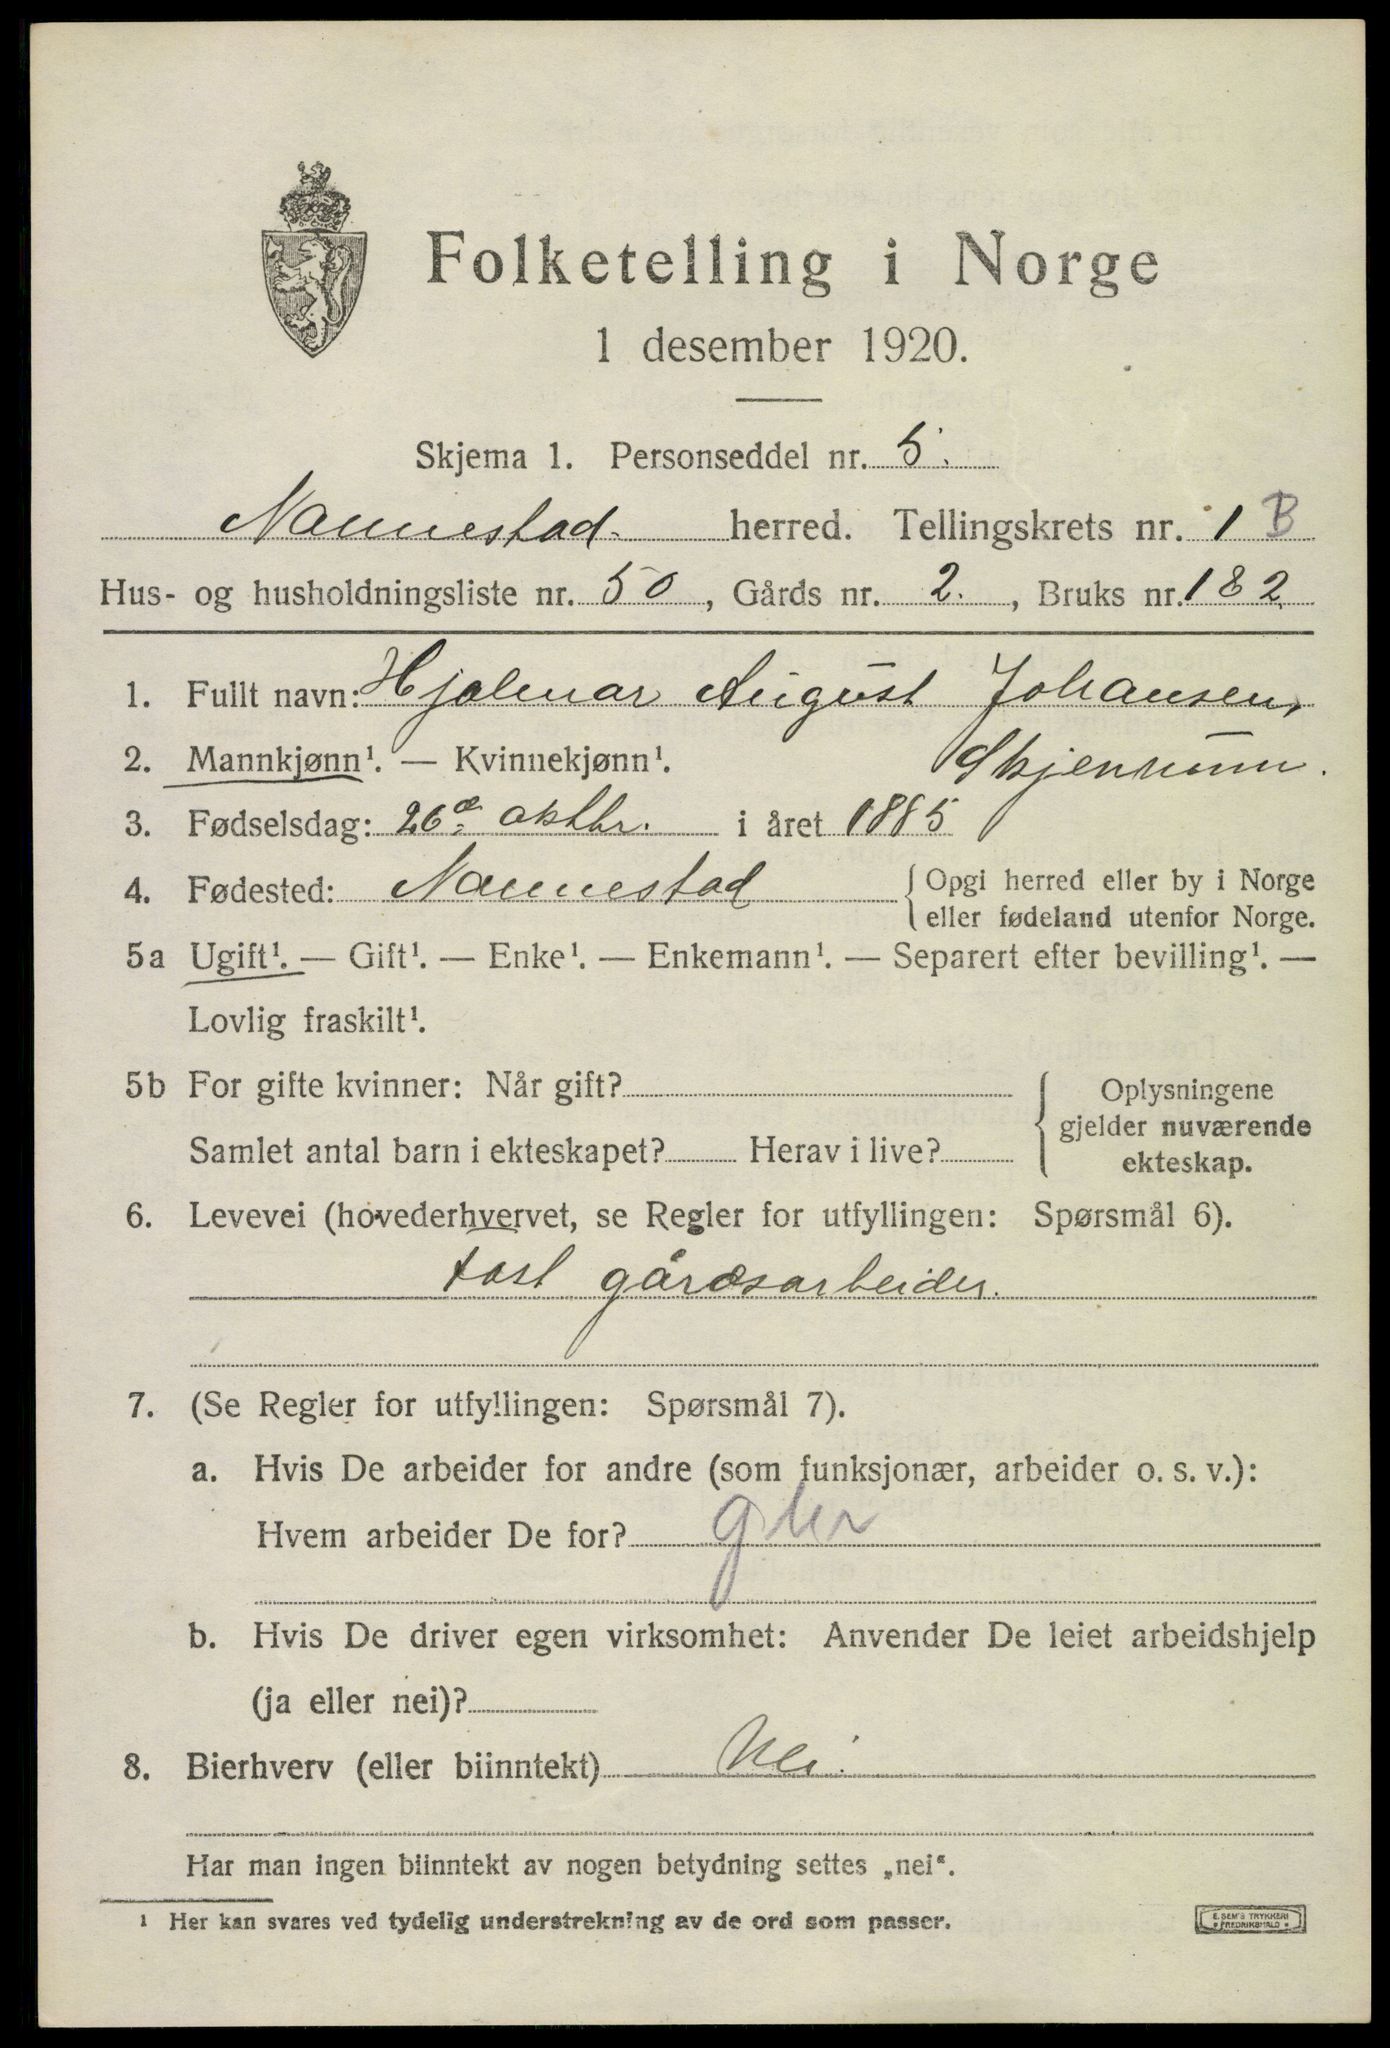 Folketelling i Norge
1 desember 1920.
Skjema 1. Personseddel nr. 5.
Nannestad. herred. Tellingskrets nr. 1 B
Hus- og husholdningsliste nr. 50, Gårds nr. 2., Bruks nr. 182.
1. Fullt navn: Hjalmar August Johansen,
2. Mannkjønn¹. — Kvinnekjønn¹. Skjennum.
3. Fødselsdag: 26de oktbr. i året 1885
4. Fødested: Nannestad { Opgi herred eller by i Norge
eller fødeland utenfor Norge.
5a Ugift¹. — Gift¹. — Enke¹. — Enkemann¹. — Separert efter bevilling¹. —
Lovlig fraskilt¹.
5b For gifte kvinner: Når gift? { Oplysningene
gjelder nuværende
Samlet antal barn i ekteskapet? Herav i live?
ekteskap.
6. Levevei (hovederhvervet, se Regler for utfyllingen: Spørsmål 6).
fast gårdsarbeider.
7. (Se Regler for utfyllingen: Spørsmål 7).
a. Hvis De arbeider for andre (som funksjonær, arbeider o. s. v.):
Hvem arbeider De for?
b. Hvis De driver egen virksomhet: Anvender De leiet arbeidshjelp
(ja eller nei)?
8. Bierhverv (eller biinntekt) Nei.
Har man ingen biinntekt av nogen betydning settes „nei“.
¹ Her kan svares ved tydelig understrekning av de ord som passer.
E. SEM'S TRYKKERI
FREDRIKSHALD